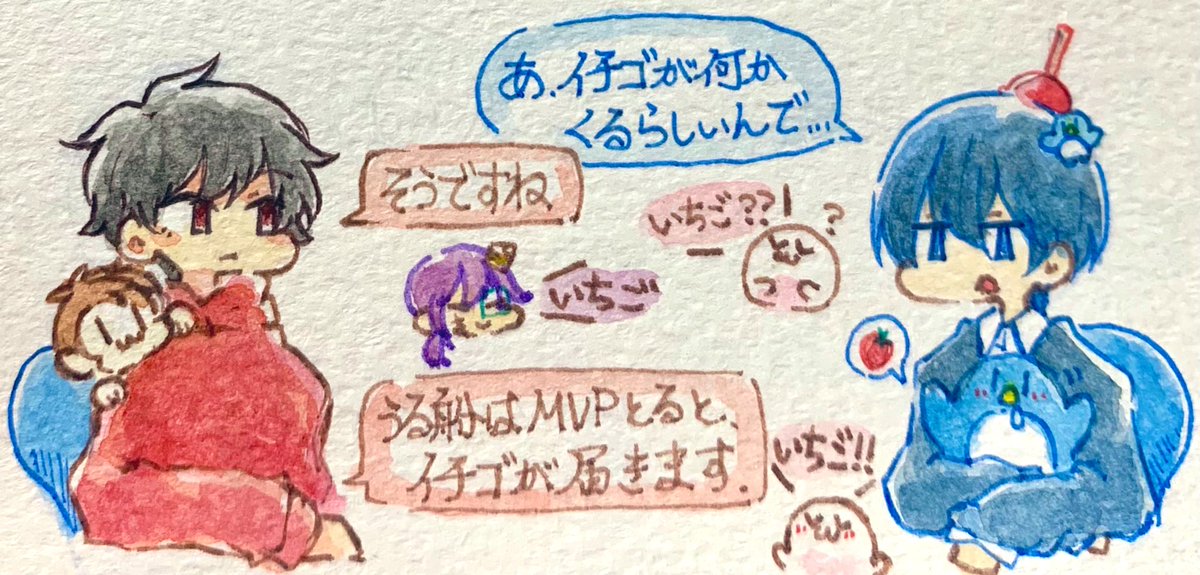 あ、イチゴが何か
くるらしいんで…
そうですね
いちご??
?
いちご
うる船はMVPとると、
イチゴが届きます.
いちご!!